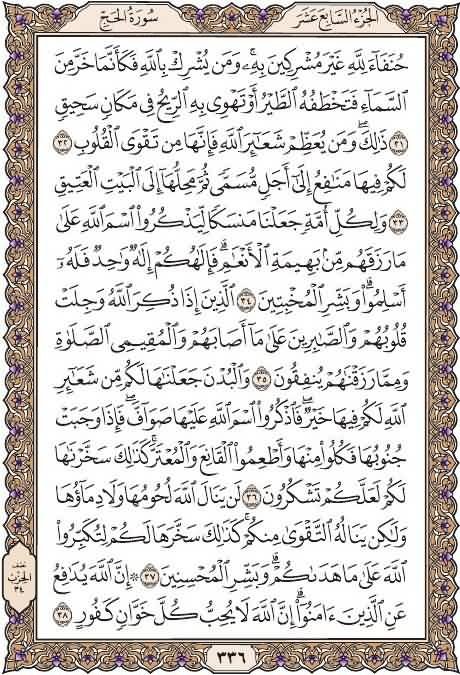 الجزء السابع عشر
سورة الحج
حُنَفَاءَ لِلَّهِ غَيْرَ مُشْرِكِينَ بِهِۦ ۚ وَمَن يُشْرِكْ بِاللَّهِ فَكَأَنَّمَا خَرَّ مِنَ
السَّمَاءِ فَتَخْطَفُهُ الطَّيْرُ أَوْ تَهْوِى بِهِ الرِّيحُ فِى مَكَانٍ سَحِيقٍ
٣١ ذَٰلِكَ ۖ وَمَن يُعَظِّمْ شَعَـٰٓئِرَ اللَّهِ فَإِنَّهَا مِن تَقْوَى الْقُلُوبِ ٣٢
لَكُمْ فِيهَا مَنَـٰفِعُ إِلَىٰٓ أَجَلٍ مُّسَمًّى ثُمَّ مَحِلُّهَآ إِلَى الْبَيْتِ الْعَتِيقِ
٣٣ وَلِكُلِّ أُمَّةٍ جَعَلْنَا مَنسَكًا لِّيَذْكُرُوا۟ اسْمَ اللَّهِ عَلَىٰ
مَا رَزَقَهُم مِّنۢ بَهِيمَةِ الْأَنْعَـٰمِ ۗ فَإِلَـٰهُكُمْ إِلَـٰهٌ وَٰحِدٌ فَلَهُۥٓ
أَسْلِمُوا۟ ۗ وَبَشِّرِ الْمُخْبِتِينَ ٣٤ الَّذِينَ إِذَا ذُكِرَ اللَّهُ وَجِلَتْ
قُلُوبُهُمْ وَالصَّـٰبِرِينَ عَلَىٰ مَآ أَصَابَهُمْ وَالْمُقِيمِى الصَّلَوٰةِ
وَمِمَّا رَزَقْنَـٰهُمْ يُنفِقُونَ ٣٥ وَالْبُدْنَ جَعَلْنَـٰهَا لَكُم مِّن شَعَـٰٓئِرِ
اللَّهِ لَكُمْ فِيهَا خَيْرٌ ۖ فَاذْكُرُوا۟ اسْمَ اللَّهِ عَلَيْهَا صَوَآفَّ ۖ فَإِذَا وَجَبَتْ
جُنُوبُهَا فَكُلُوا۟ مِنْهَا وَأَطْعِمُوا۟ الْقَانِعَ وَالْمُعْتَرَّ ۚ كَذَٰلِكَ سَخَّرْنَـٰهَا
لَكُمْ لَعَلَّكُمْ تَشْكُرُونَ ٣٦ لَن يَنَالَ اللَّهَ لُحُومُهَا وَلَا دِمَآؤُهَا
وَلَـٰكِن يَنَالُهُ التَّقْوَىٰ مِنكُمْ ۚ كَذَٰلِكَ سَخَّرَهَا لَكُمْ لِتُكَبِّرُوا۟
اللَّهَ عَلَىٰ مَا هَدَىٰكُمْ ۗ وَبَشِّرِ الْمُحْسِنِينَ ٣٧ ۞ إِنَّ اللَّهَ يُدَٰفِعُ
عَنِ الَّذِينَ ءَامَنُوٓا۟ ۗ إِنَّ اللَّهَ لَا يُحِبُّ كُلَّ خَوَّانٍ كَفُورٍ ٣٨
نصف
الحزب
٣٤
٣٣٦